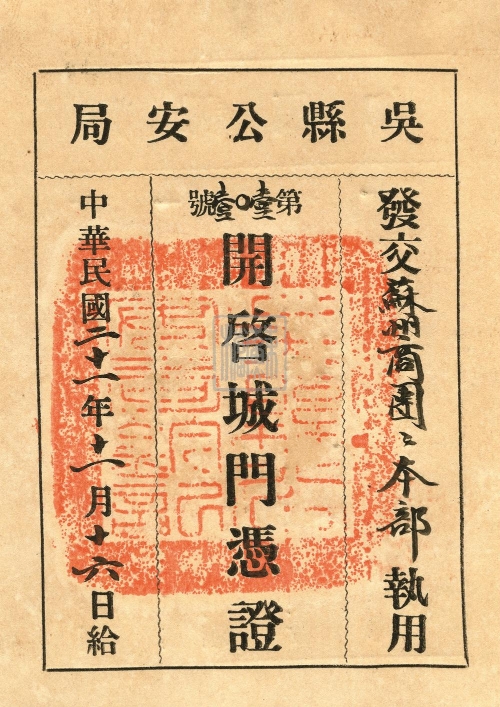 吳縣公安局
發交蘇州商團〻本部執用
第壹〇壹號
開啓城門憑證
中華民國二十一年十一月十六日給